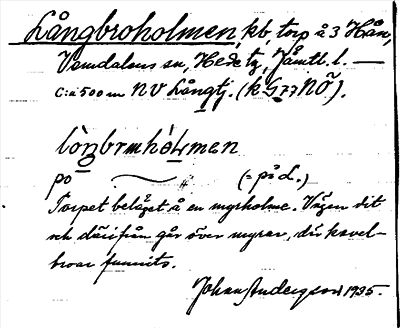 Långbroholmen, kb torp å 3 Hån,
Vemdalens sn, Hede tg, Jämtl. l. —
c:a 500 m NV Långtj. (k G 77 NÖ).
lòŋbrωhòLmen
på ~ (= på L.)
Torpet beläget å en myrholme. Vägen dit
och därifrån går över myrar, där kavel-
broar funnits.
Johan Anderson 1935.